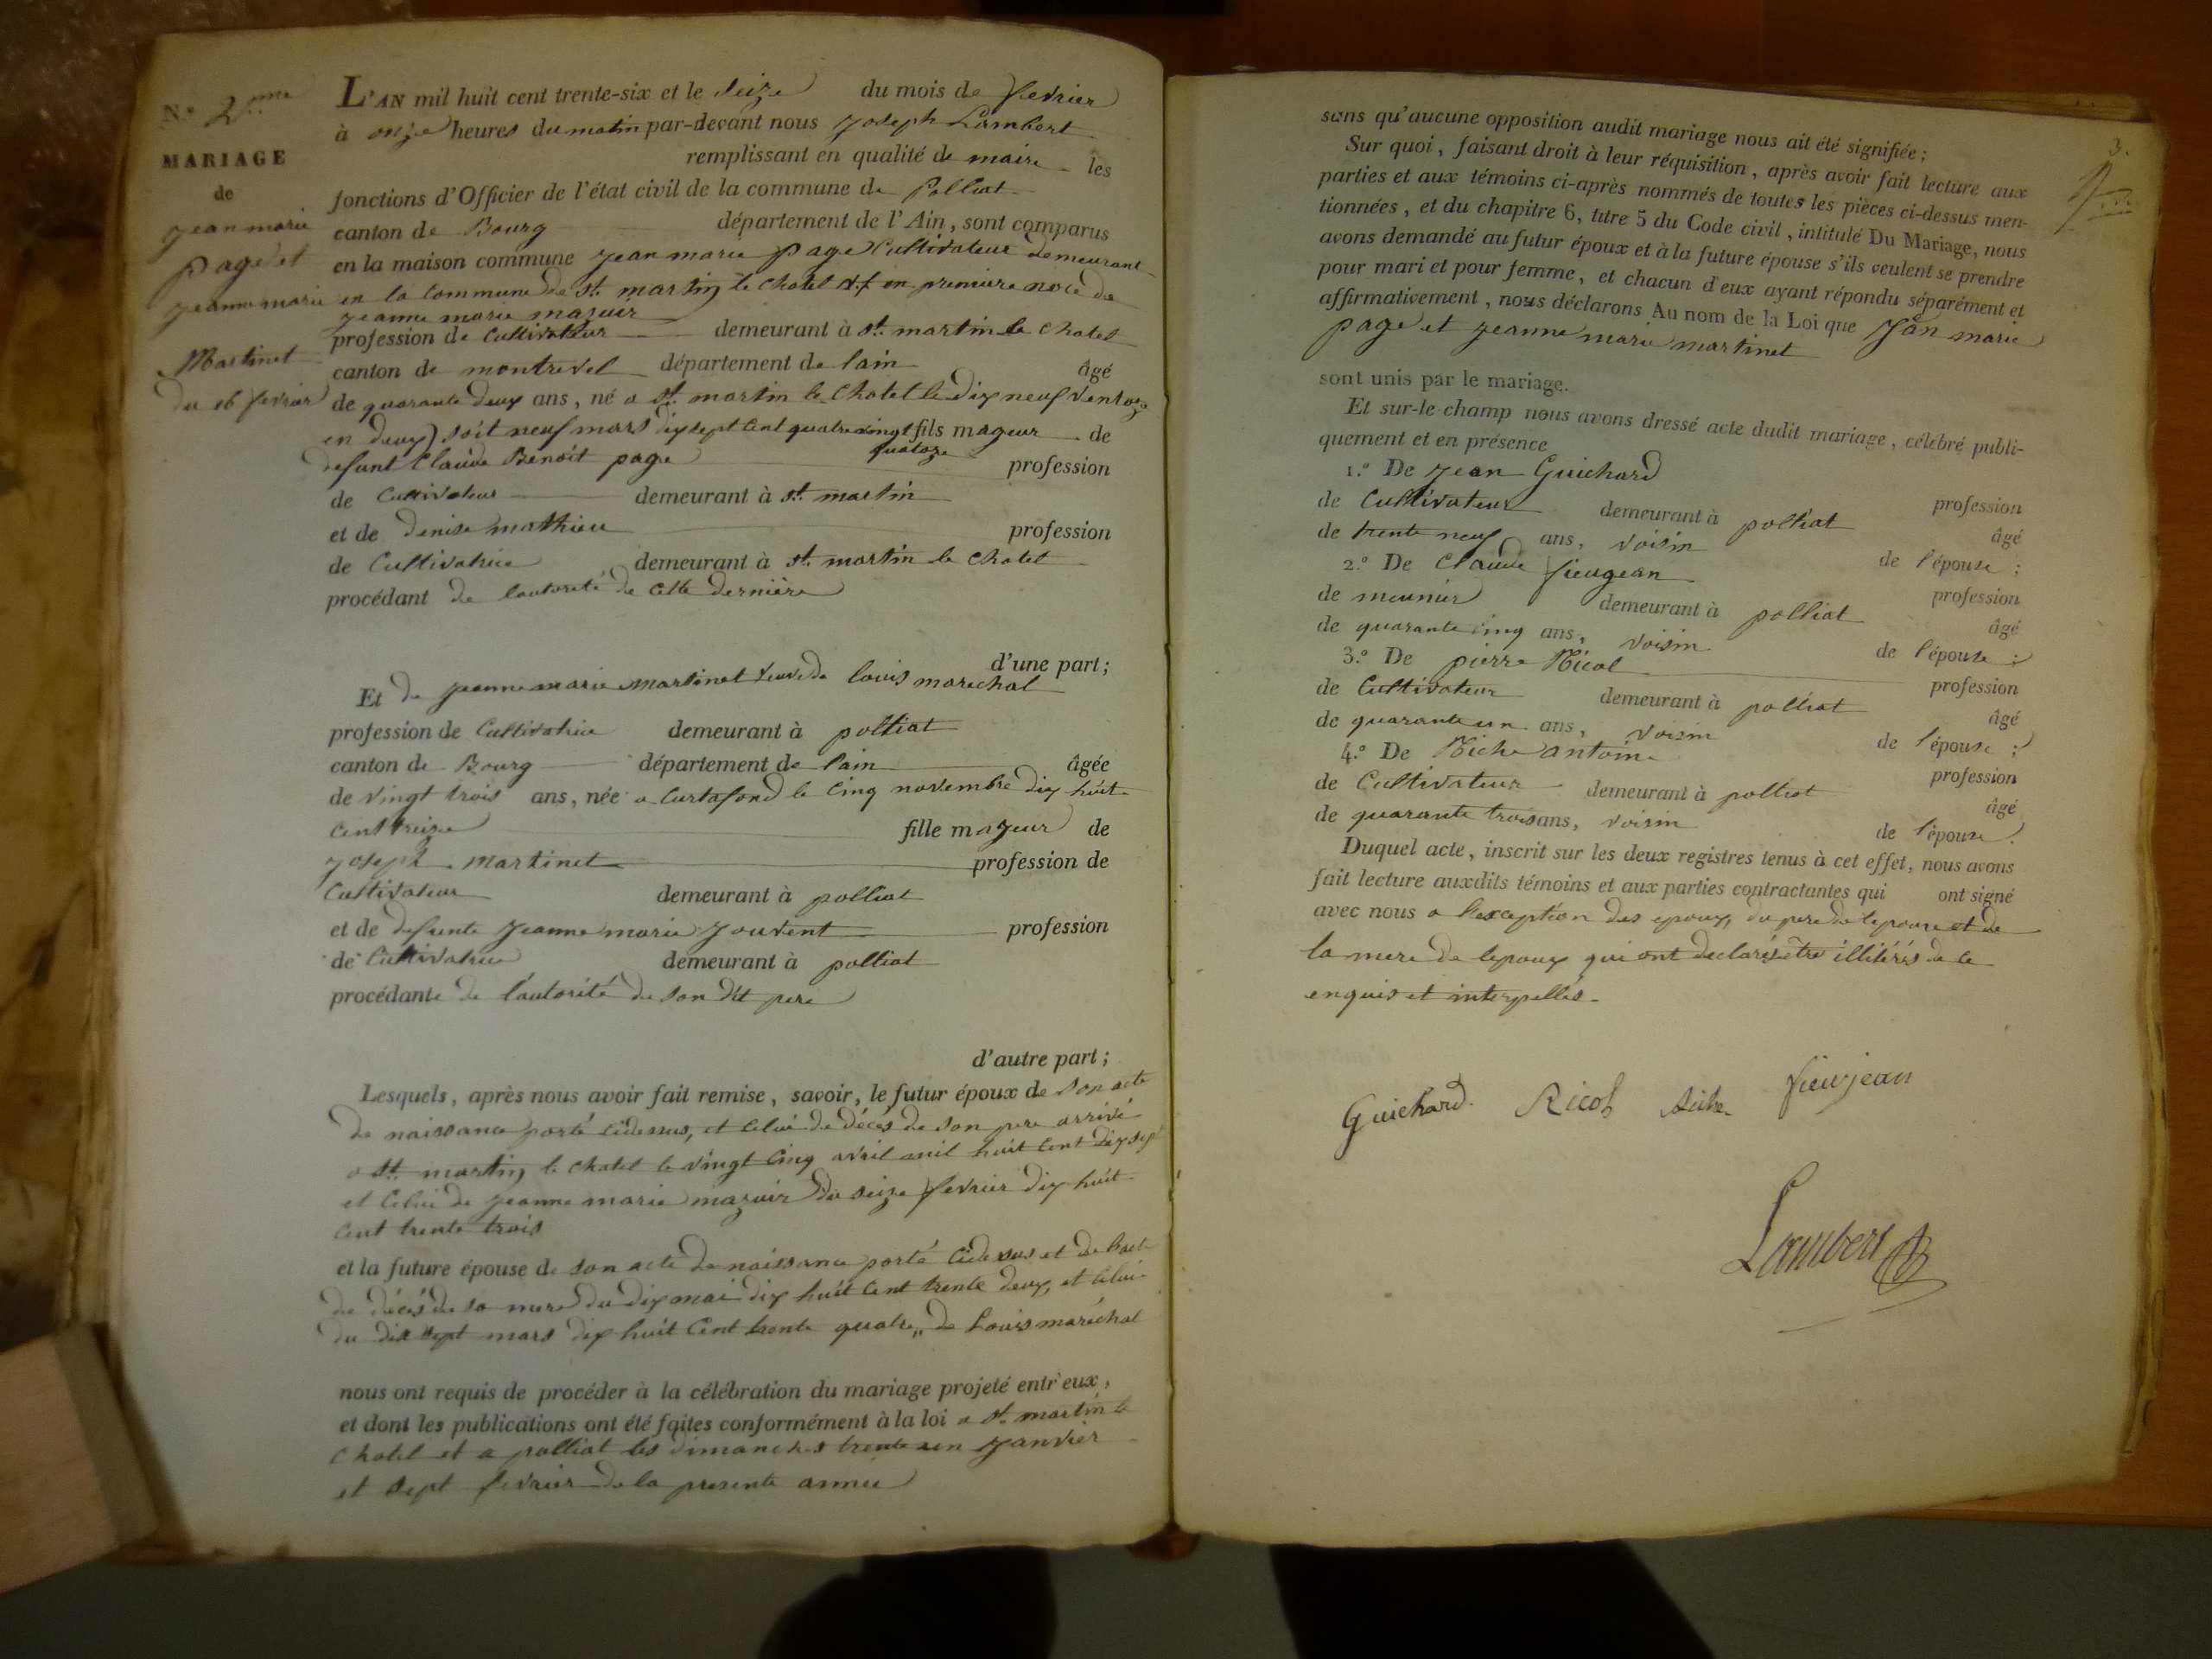 N.o 2.me
MARIAGE
de
jean marie
page et
jeanne marie
Martinet
du 16 fevrier
L'AN mil huit cent trente-six et le seize du mois de fevrier
à onze heures du matin par-devant nous joseph Lambert
remplissant en qualité de maire les
fonctions d'Officier de l'état civil de la commune de Polliat
canton de Bourg département de l'Ain, sont comparus
en la maison commune jean marie page Cultivateur demeurant
en la commune de st. martin le chatel en premiere noce de
jeanne marie mazuir
profession de cultivateur demeurant à st. martin le chatel
canton de montrevel département de lain âgé
de quarante deux ans, né a st. martin le chatel le dix neuf ventose
en deux) soit neuf mars dix sept cent quatre vingt fils mageur de
quatoze
defunt Claude Benoit page profession
de Cultivateur demeurant à st. martin
et de denise mathieu profession
de Cultivatrice demeurant à st. martin le chatel
procédant de lautorité de cette dernière
d'une part;
Et de jeanne marie martinet veuve de louis marechal
profession de Cultivatrice demeurant à polliat
canton de Bourg département de lain âgée
de vingt trois ans, née a Curtafond le cinq novembre dix huit
cent treize fille majeur de
joseph martinet profession de
Cultivateur demeurant à polliat
et de defunte jeanne marie jouvent profession
de Cultivatrice demeurant à polliat
procédante de l'autorité de son dit pere
d'autre part;
Lesquels, après nous avoir fait remise, savoir, le futur époux de son acte
de naissance porté cidessus, et celui de décés de son pere arrivé
a st. martin le chatel le vingt cinq avril mil huit cent dix sept
et celui de jeanne marie mazuir du seize fevrier dix huit
cent trente trois
et la future épouse de son acte de naissance porté cidessus et de lacte
de décés de sa mere du dix mai dix huit cent trente deux, et celui
du dix sept mars dix huit cent trente quatre,, de Louis maréchal
nous ont requis de procéder à la célébration du mariage projeté entr'eux,
et dont les publications ont été faites conformément à la loi a st. martin le
chatel et a polliat les dimanches trente un janvier
et sept fevrier de la presente année
3.
sans qu'aucune opposition audit mariage nous ait été signifiée;
Sur quoi, faisant droit à leur réquisition, après avoir fait lecture aux
parties et aux témoins ci-après nommés de toutes les pièces ci-dessus men-
tionnées, et du chapitre 6, titre 5 du Code civil, intitulé Du Mariage, nous
avons demandé au futur époux et à la future épouse s'ils veulent se prendre
pour mari et pour femme, et chacun d'eux ayant répondu séparément et
affirmativement, nous déclarons Au nom de la Loi que Jean marie
page et jeanne marie martinet
sont unis par le mariage.
Et sur-le-champ nous avons dressé acte dudit mariage, célébré publi-
quement et en présence
1.o De jean Guichard profession
de Cultivateur demeurant à polliat âgé
de trente neuf ans, voisin de l'épouse;
2.o De Claude fieugean profession
de meunier demeurant à polliat âgé
de quarante cinq ans, voisin de l'épouse;
3.o De pierre Ricol profession
de Cultivateur demeurant à polliat âgé
de quarante un ans, voisin de l'épouse;
4.o De antoine profession
de Cultivateur demeurant à polliat âgé
de quarante trois ans, voisin de l'épouse.
Duquel acte, inscrit sur les deux registres tenus à cet effet, nous avons
fait lecture auxdits témoins et aux parties contractantes qui ont signé
avec nous a lexception des epoux, du pere de lepouse et de
la mere de lepoux qui ont declarés être illitérés de ce
enquis et interpellés.
Guichard. Ricol fieujean
Lambert